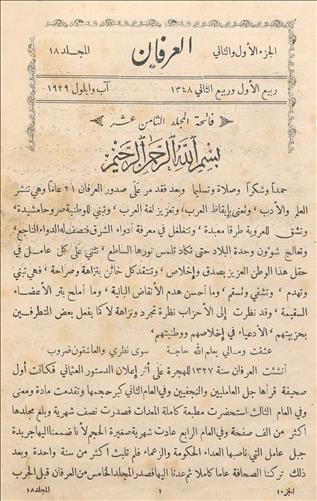 الجزء الأول والثاني العرفان المجلد ١٨
ربيع الأول وربيع الثاني ١٣٤٨ آب وايلول ١٩٢٩
فاتحة المجلد الثامن عشر
بسم الله الرحمن الرحيم
حمداً وشكراً وصلاة وتسليما وبعد فقد مر على صدور العرفان ٢١ عاماً وهي تنشر
العلم والأدب، وتعنى بإيقاظ العرب وتعزيز لغة العرب، وتبني للوطنية صروحا مشيدة،
وتشق للعروبة طرقا معبدة، وتتغلغل في معرفة أدواء الشرق فتصف له الدواء الناجع،
وتعالج شؤون وحدة البلاد حتى تكاد تلمس نورها الساطع، تثني على كل عامل في
حقل هذا الوطن العزيز بصدق وإخلاص، وتنتقد كل خائن بنزاهة وصراحة، فهي تبني
وتهدم، وتشفي وتسقم، وما أحسن هدم الأنقاض البالية، وما أملح بتر الأعضاء
السقيمة، وقد نظرت إلى الأحزاب نظرة تجرد ونزاهة لا كما يفعل بعض المتطرفين
بحزبيتهم، الأدعياء في إخلاصهم ووطنيتهم،
عشقت ومالي يعلم الله حاجة سوى نظري والعاشقون ضروب
أنشئت العرفان سنة ١٣٢٧ للهجرة على أثر إعلان الدستور العثماني فكانت أول
صحيفة قرأها جل العامليين والنجفيين وفي العام الثاني كبر حجمها وتقدمت مادة ومعنى
وفي العام الثالث استحضرت مطبعة كاملة المعدات فصدرت نصف شهرية وبلغ مجلدها
أكثر من الف صفحة وفي العام الرابع عادت شهرية صغيرة الحجم لأننا ضممنا اليها جريدة
جبل عامل التي ناصبها العداء الحكومة والزعماء فلم تلبث اكثر من سنة واحدة وبعد
ذلك تركنا الصحافة عاما كاملا ثم عدنا اليها فصدر المجلد الخامس من العرفان قبل الحرب
الجزء ١٠ ١ المجلد ١٨